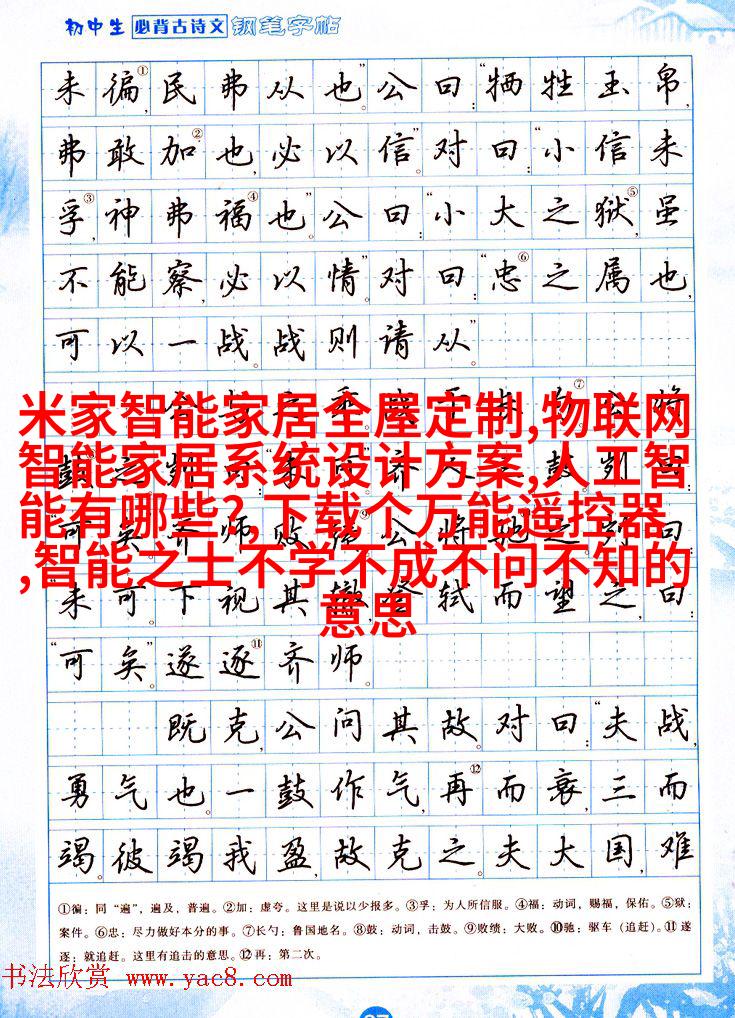 初中生 必背古诗文 钢笔字帖
未徧①，民弗从也。”公曰：“牺牲玉帛，
弗敢加②也，必以信。”对曰：“小信未
孚③，神弗福④也。”公曰：“小大之狱⑤，虽
不能察，必以情。”对曰：“忠⑥之属也，
可以一战。战则请从。”
米家智能家居全屋定制,物联网
智能家居系统设计方案,人工智
能有哪些?,下载个万能遥控器
,智能之士不学不成不问不知的
意思
未可。”下视其辙，登轼而望之，曰：
“可矣。”遂逐⑪齐师。
既克，公问其故。对曰：“夫战，
勇气也。一鼓作气，再⑫而衰，三而
竭。彼竭我盈，故克之。夫大国，难
①徧：同“遍”，遍及，普遍。②加：虚夸。这里是说以少报多。③孚：为人所信服。④福：动词，赐福，保佑。⑤狱：
案件。⑥忠：尽力做好本分的事。⑦长勺：鲁国地名。⑧鼓：动词，击鼓。⑨败绩：大败。⑩驰：驱车（追赶）。⑪遂
逐：就追赶。这里有追击的意思。⑫再：第二次。
书法欣赏 www.yac8.com